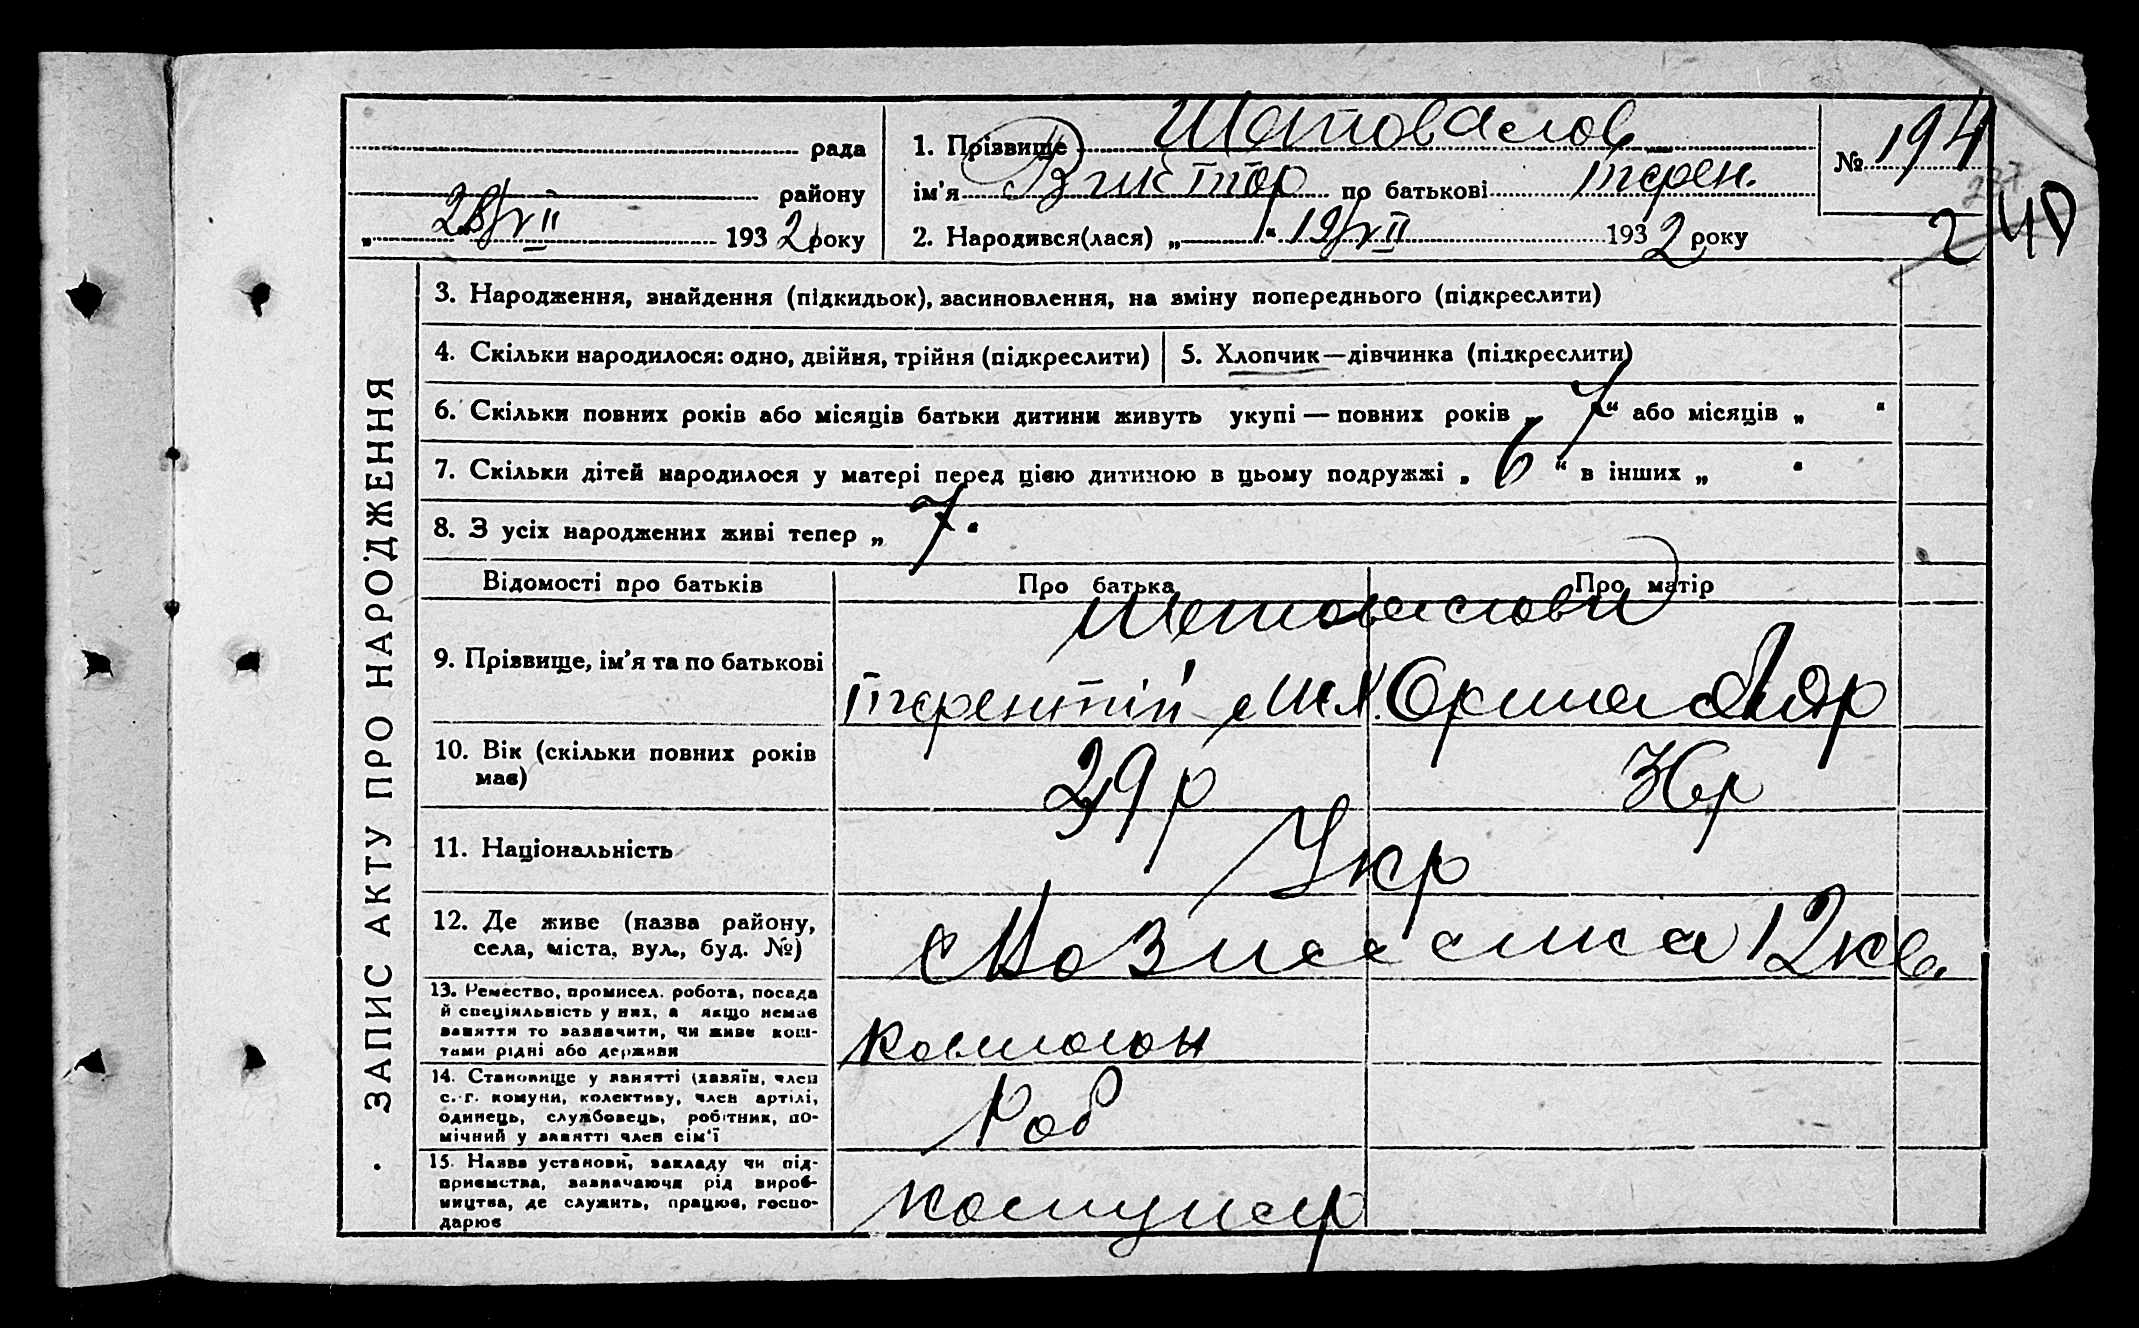 ЗАПИС АКТУ ПРО НАРОДЖЕННЯ
рада
району
„ 28/VII 1932 року
1. Прізвище Шаповалов
ім'я Виктор по батькові Терен.
2. Народився(лася) „ “ 19/VII 1932 року
№ 194
240
3. Народження, знайдення (підкидьок), засиновлення, на зміну попереднього (підкреслити)
4. Скільки народилося: одно, двійня, трійня (підкреслити)
5. Хлопчик—дівчинка (підкреслити)
6. Скільки повних років або місяців батьки дитини живуть укупі — повних років „ 7 “ або місяців „ “
7. Скільки дітей народилося у матері перед цією дитиною в цьому подружжі „ 6 “ в інших „ “
8. З усіх народжених живі тепер „ 7 “
Відомості про батьків
Про батька
Про матір
9. Прізвище, ім'я та по батькові
Шаповалови
Терентій
Орина
10. Вік (скільки повних років
має)
29 р
11. Національність
Укр
12. Де живе (назва району,
села, міста, вул., буд. №)
с Вознесенка 12 кв.
13. Ремество, промисел. робота, посада
й спеціяльність у них, а якщо немає
заняття то зазначити, чи живе кош-
тами рідні або держави
14. Становище у занятті (хазяїн, член
с.-г. комуни, колективу, член артілі,
одинець, службовець, робітник, по-
мічний у занятті член сім'ї
Роб
15. Назва установи, закладу чи під-
приємства, зазначаючи рід вироб-
ництва, де служить, працює, госпо-
дарює